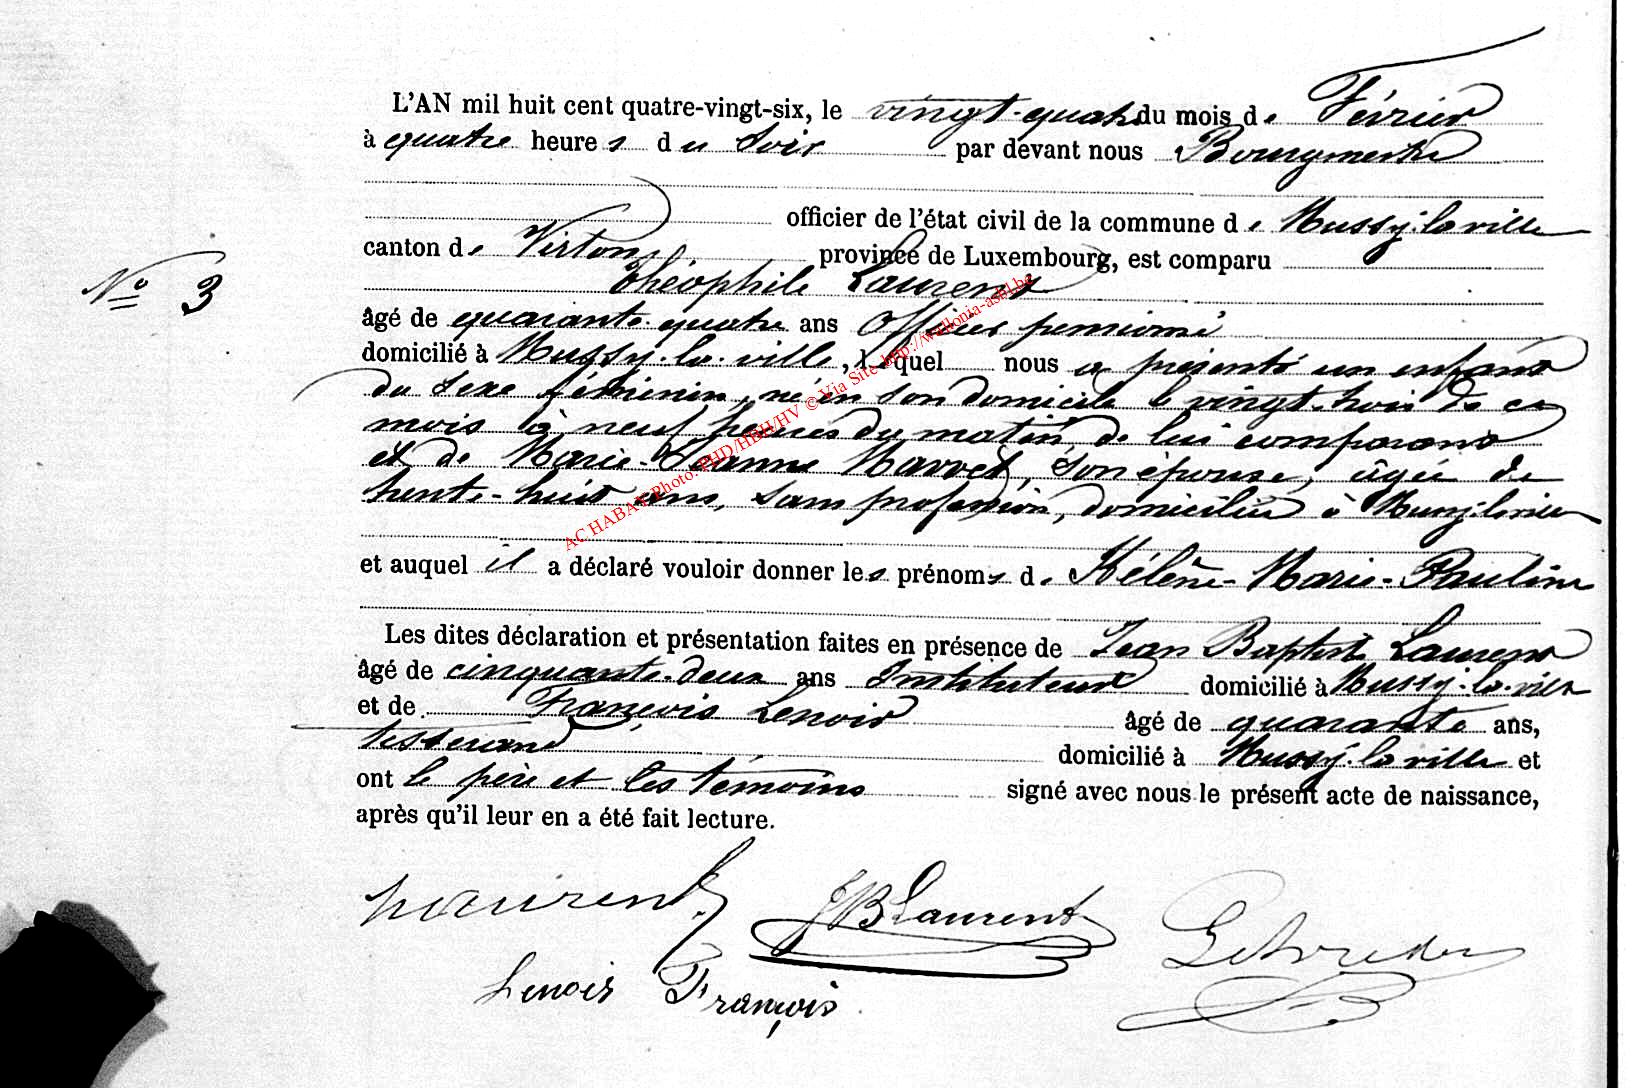 L'AN mil huit cent quatre-vingt-six, le vingt-quatre du mois de Février
à quatre heures du soir par devant nous Bourgmestre
officier de l'état civil de la commune de Mussy-la-ville
canton de Virton province de Luxembourg, est comparu
Théophile Laurent
N° 3
âgé de quarante-quatre ans officier pensionné
domicilié à Mussy-la-ville, lequel nous a présenté un enfant
du sexe féminin, né en son domicile le vingt-trois de ce
mois à neuf heures du matin, de lui comparant
et de Marie-Jeanne , son épouse, âgée de
trente-huit ans, sans profession, domiciliée à Mussy-la-ville
et auquel il a déclaré vouloir donner les prénoms de Hélène-Marie-Pauline
Les dites déclaration et présentation faites en présence de Jean Baptiste Laurent
âgé de cinquante-deux ans Instituteur domicilié à Mussy-la-ville
et de François Lenoir âgé de quarante ans,
tisserand domicilié à Mussy-la-ville et
ont le père et les témoins signé avec nous le présent acte de naissance,
après qu'il leur en a été fait lecture.
Laurent JB Laurent
Lenoir François
AC HABAY Photo: PHD/HBH/HV © Via Site http://wallonia-asbl.be